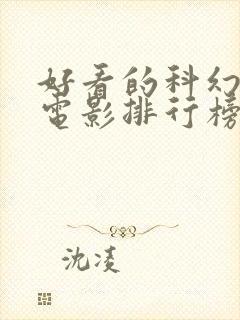 好看的科幻
电影排行榜
沈凌